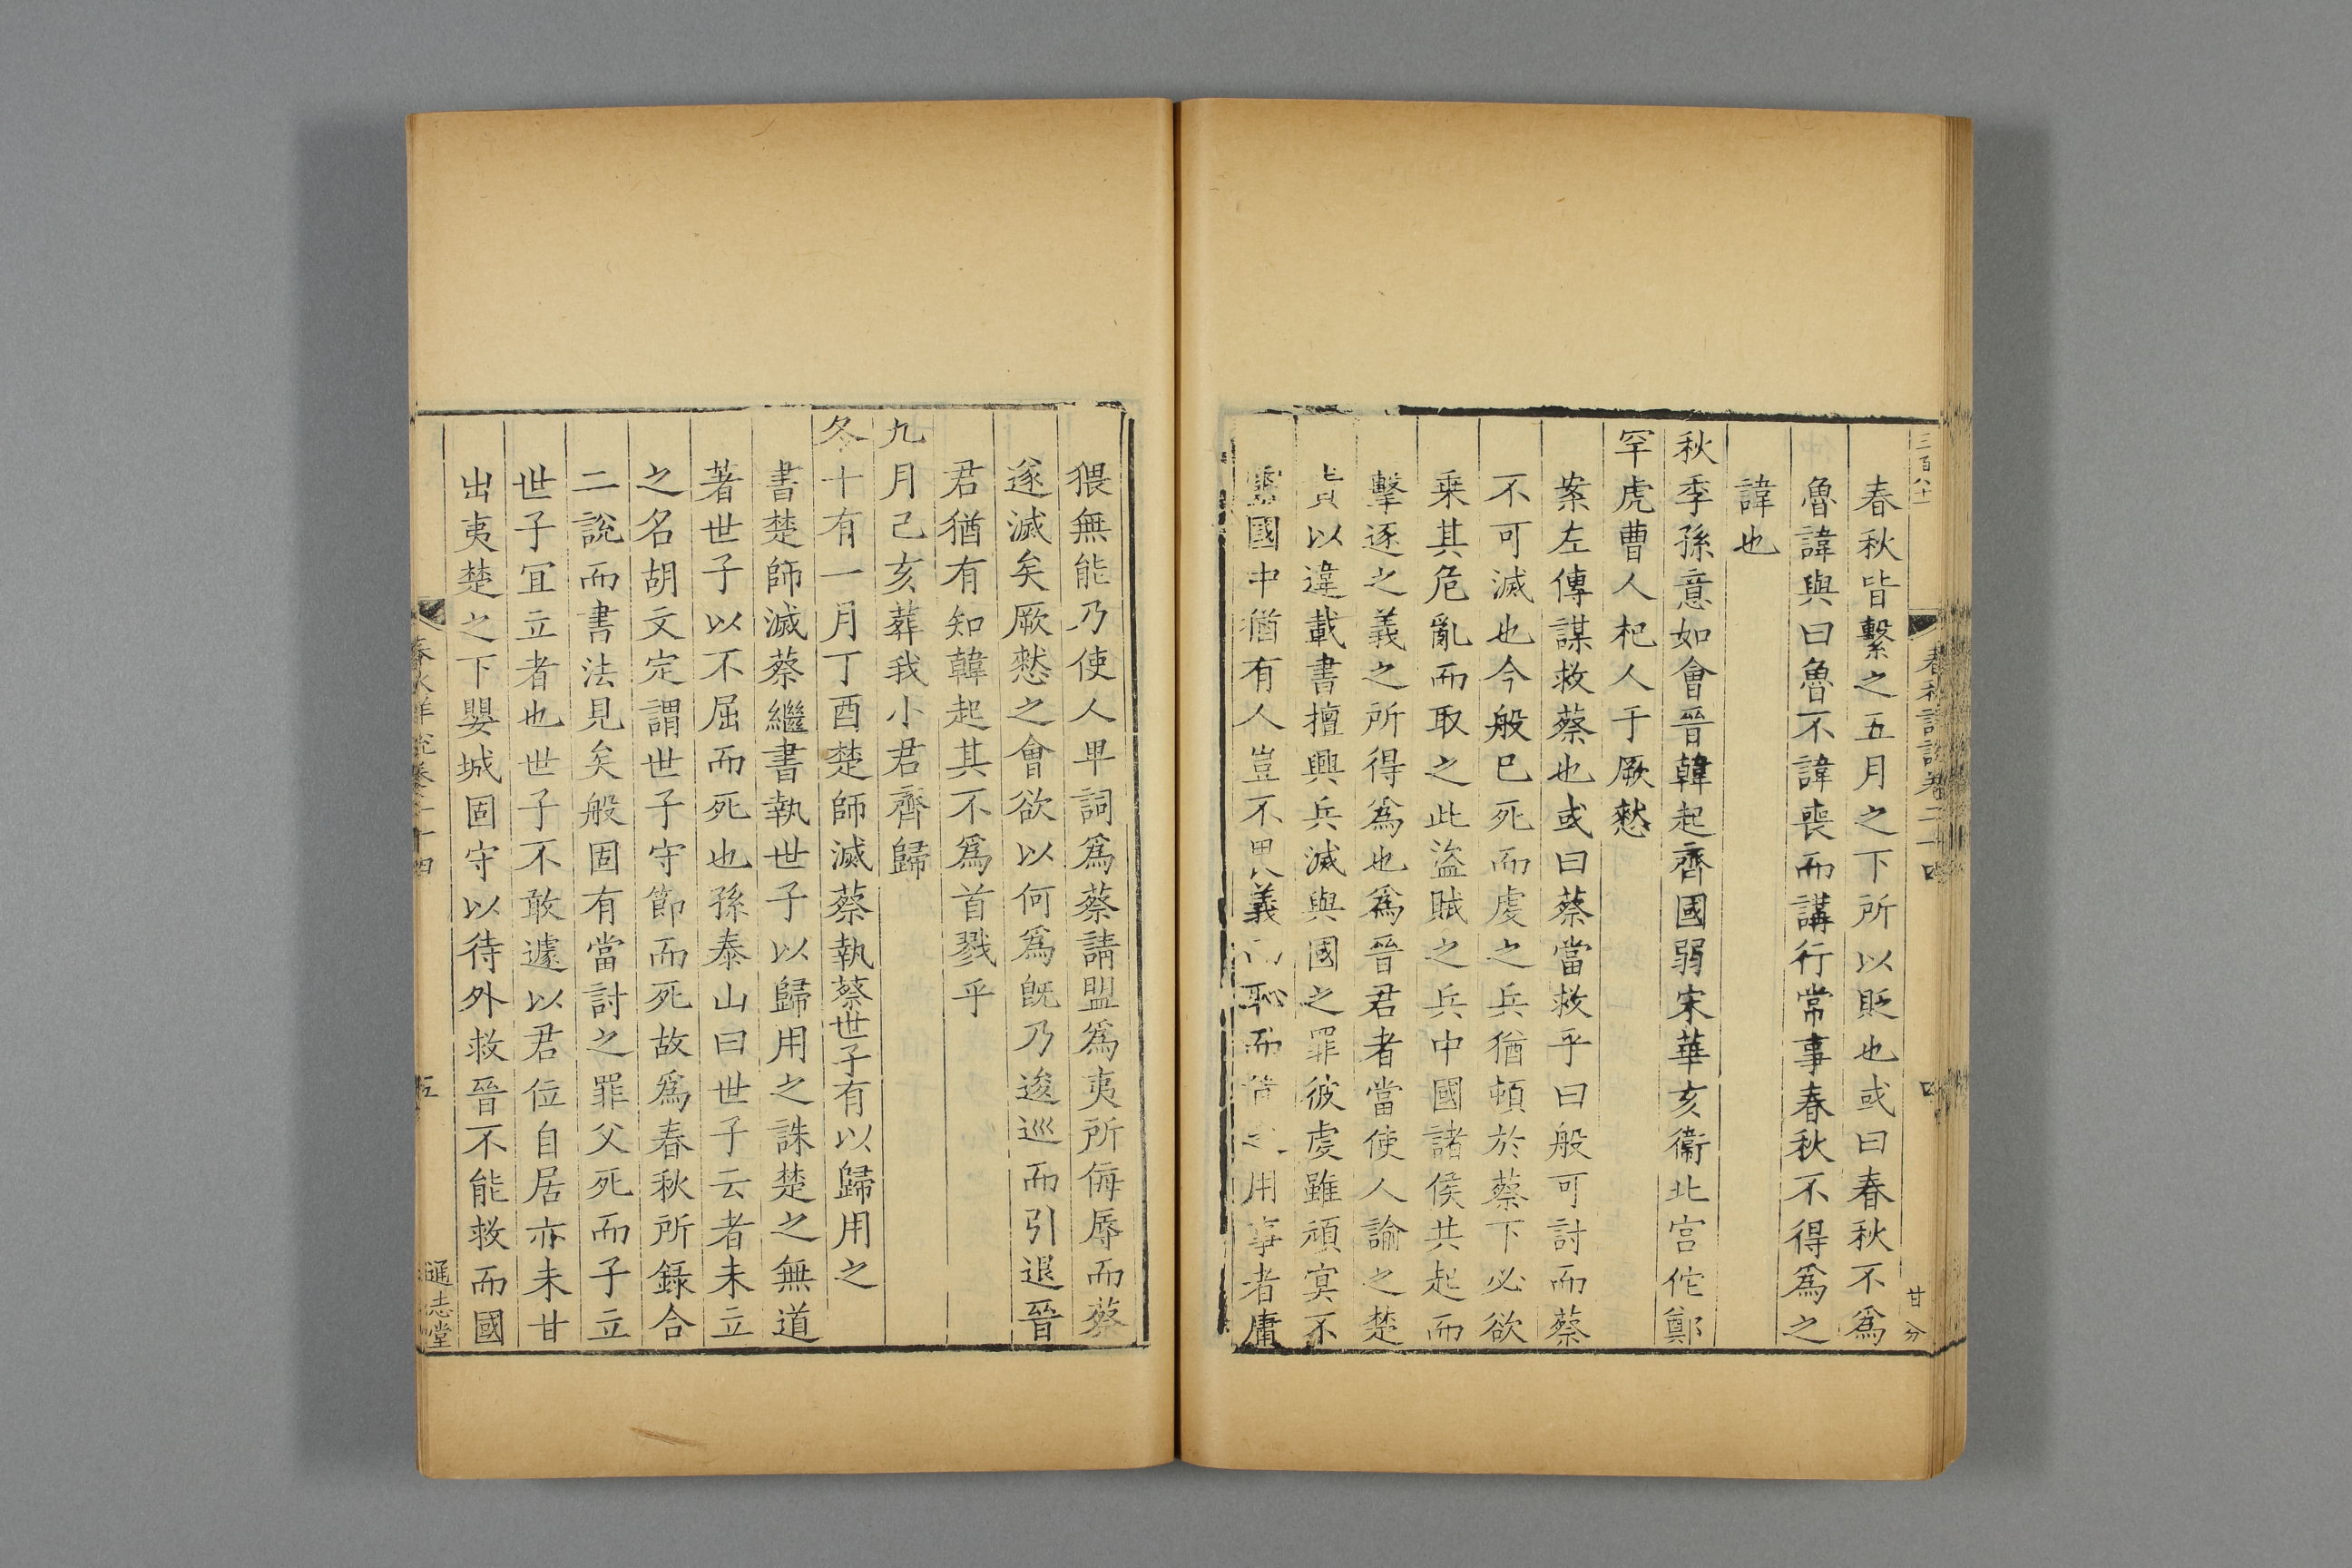 三百八十
春秋詳說卷二十四
甘分
春秋皆繫之五月之下所以貶也或曰春秋不爲
魯諱與曰魯不諱喪而講行常事春秋不得爲之
諱也
秋季孫意如會晉韓起齊國弱宋華亥衞北宫佗鄭
罕虎曹人杞人于厥憖
案左傳謀救蔡也或曰蔡當救乎曰般可討而蔡
不可滅也今般巳死而虔之兵猶頓於蔡下必欲
乗其危亂而取之此盜賊之兵中國諸侯共起而
擊逐之義之所得爲也爲晉君者當使人諭之楚
責以違載書擅興兵滅與國之罪彼虔雖頑冥不
靈國中猶有人豈不畏義而恥而用事者庸
猥無能乃使人卑詞爲蔡請盟爲夷所侮辱而蔡
遂滅矣厥憖之會欲以何爲旣乃逡巡而引退晉
君猶有知韓起其不爲首戮乎
九月己亥葬我小君齊歸
冬十有一月丁酉楚師滅蔡執蔡世子有以歸用之
書楚師滅蔡繼書執世子以歸用之誅楚之無道
著世子以不屈而死也孫泰山曰世子云者未立
之名胡文定謂世子守節而死故爲春秋所錄合
二說而書法見矣般固有當討之罪父死而子立
世子冝立者也世子不敢遽以君位自居亦未甘
出夷楚之下嬰城固守以待外救晉不能救而國
春秋詳說卷二十四
五
通志堂